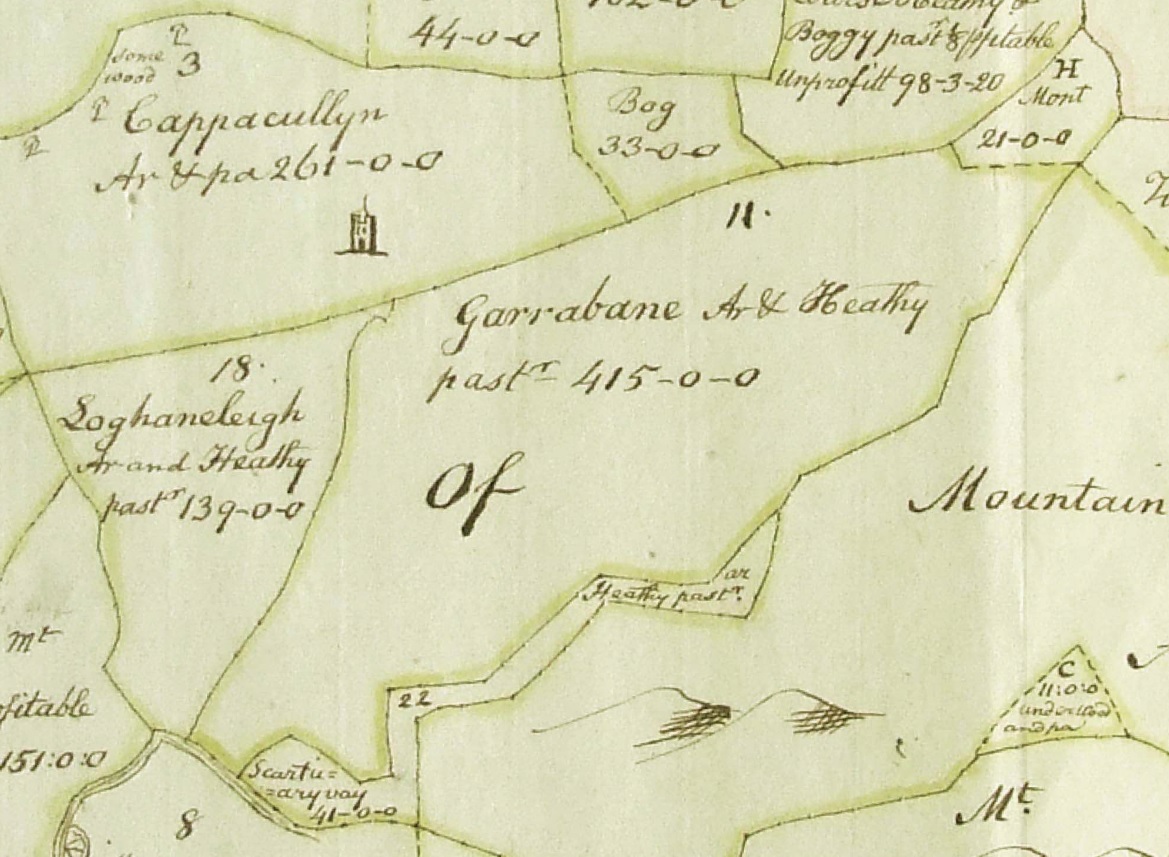 44-0-0
Boggy past^r & pfitable
Unprofitt 98-3-20
H
Mont
21-0-0
some
wood
3
Cappacullyn
Ar & pa 261-0-0
Bog
33-0-0
11.
Garrabane Ar & Heathy
past^r 415-0-0
18.
Loghaneleigh
Ar and Heathy
past^r 139-0-0
Of
Mountain
ar
Heathy past^r.
22
m^t
fitable
151:0:0
C
11:0:0
underwood
and pa
Scartu=
=aryvoy
41-0-0
8
M^t.